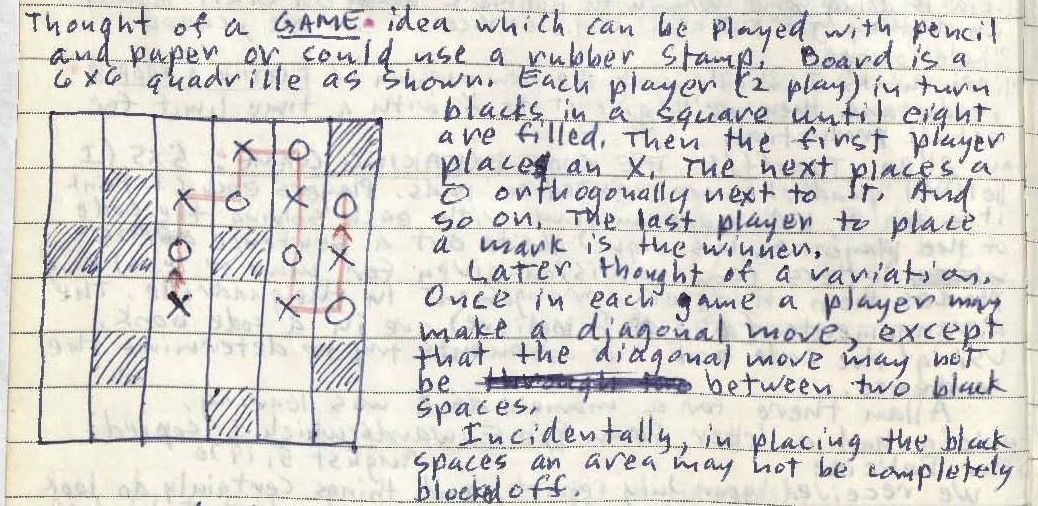 Thought of a GAME idea which can be played with pencil
and paper or could use a rubber stamp. Board is a
6x6 quadrille as shown. Each player (2 play) in turn
blacks in a square until eight
are filled. Then the first player
places an X. The next places a
O orthogonally next to it. And
so on. The last player to place
a mark is the winner.
Later thought of a variation.
Once in each game a player may
make a diagonal move, except
that the diagonal move may not
be between two black
spaces.
Incidentally, in placing the black
spaces an area may not be completely
blocked off.
X O
X O X O
O O X
X X O